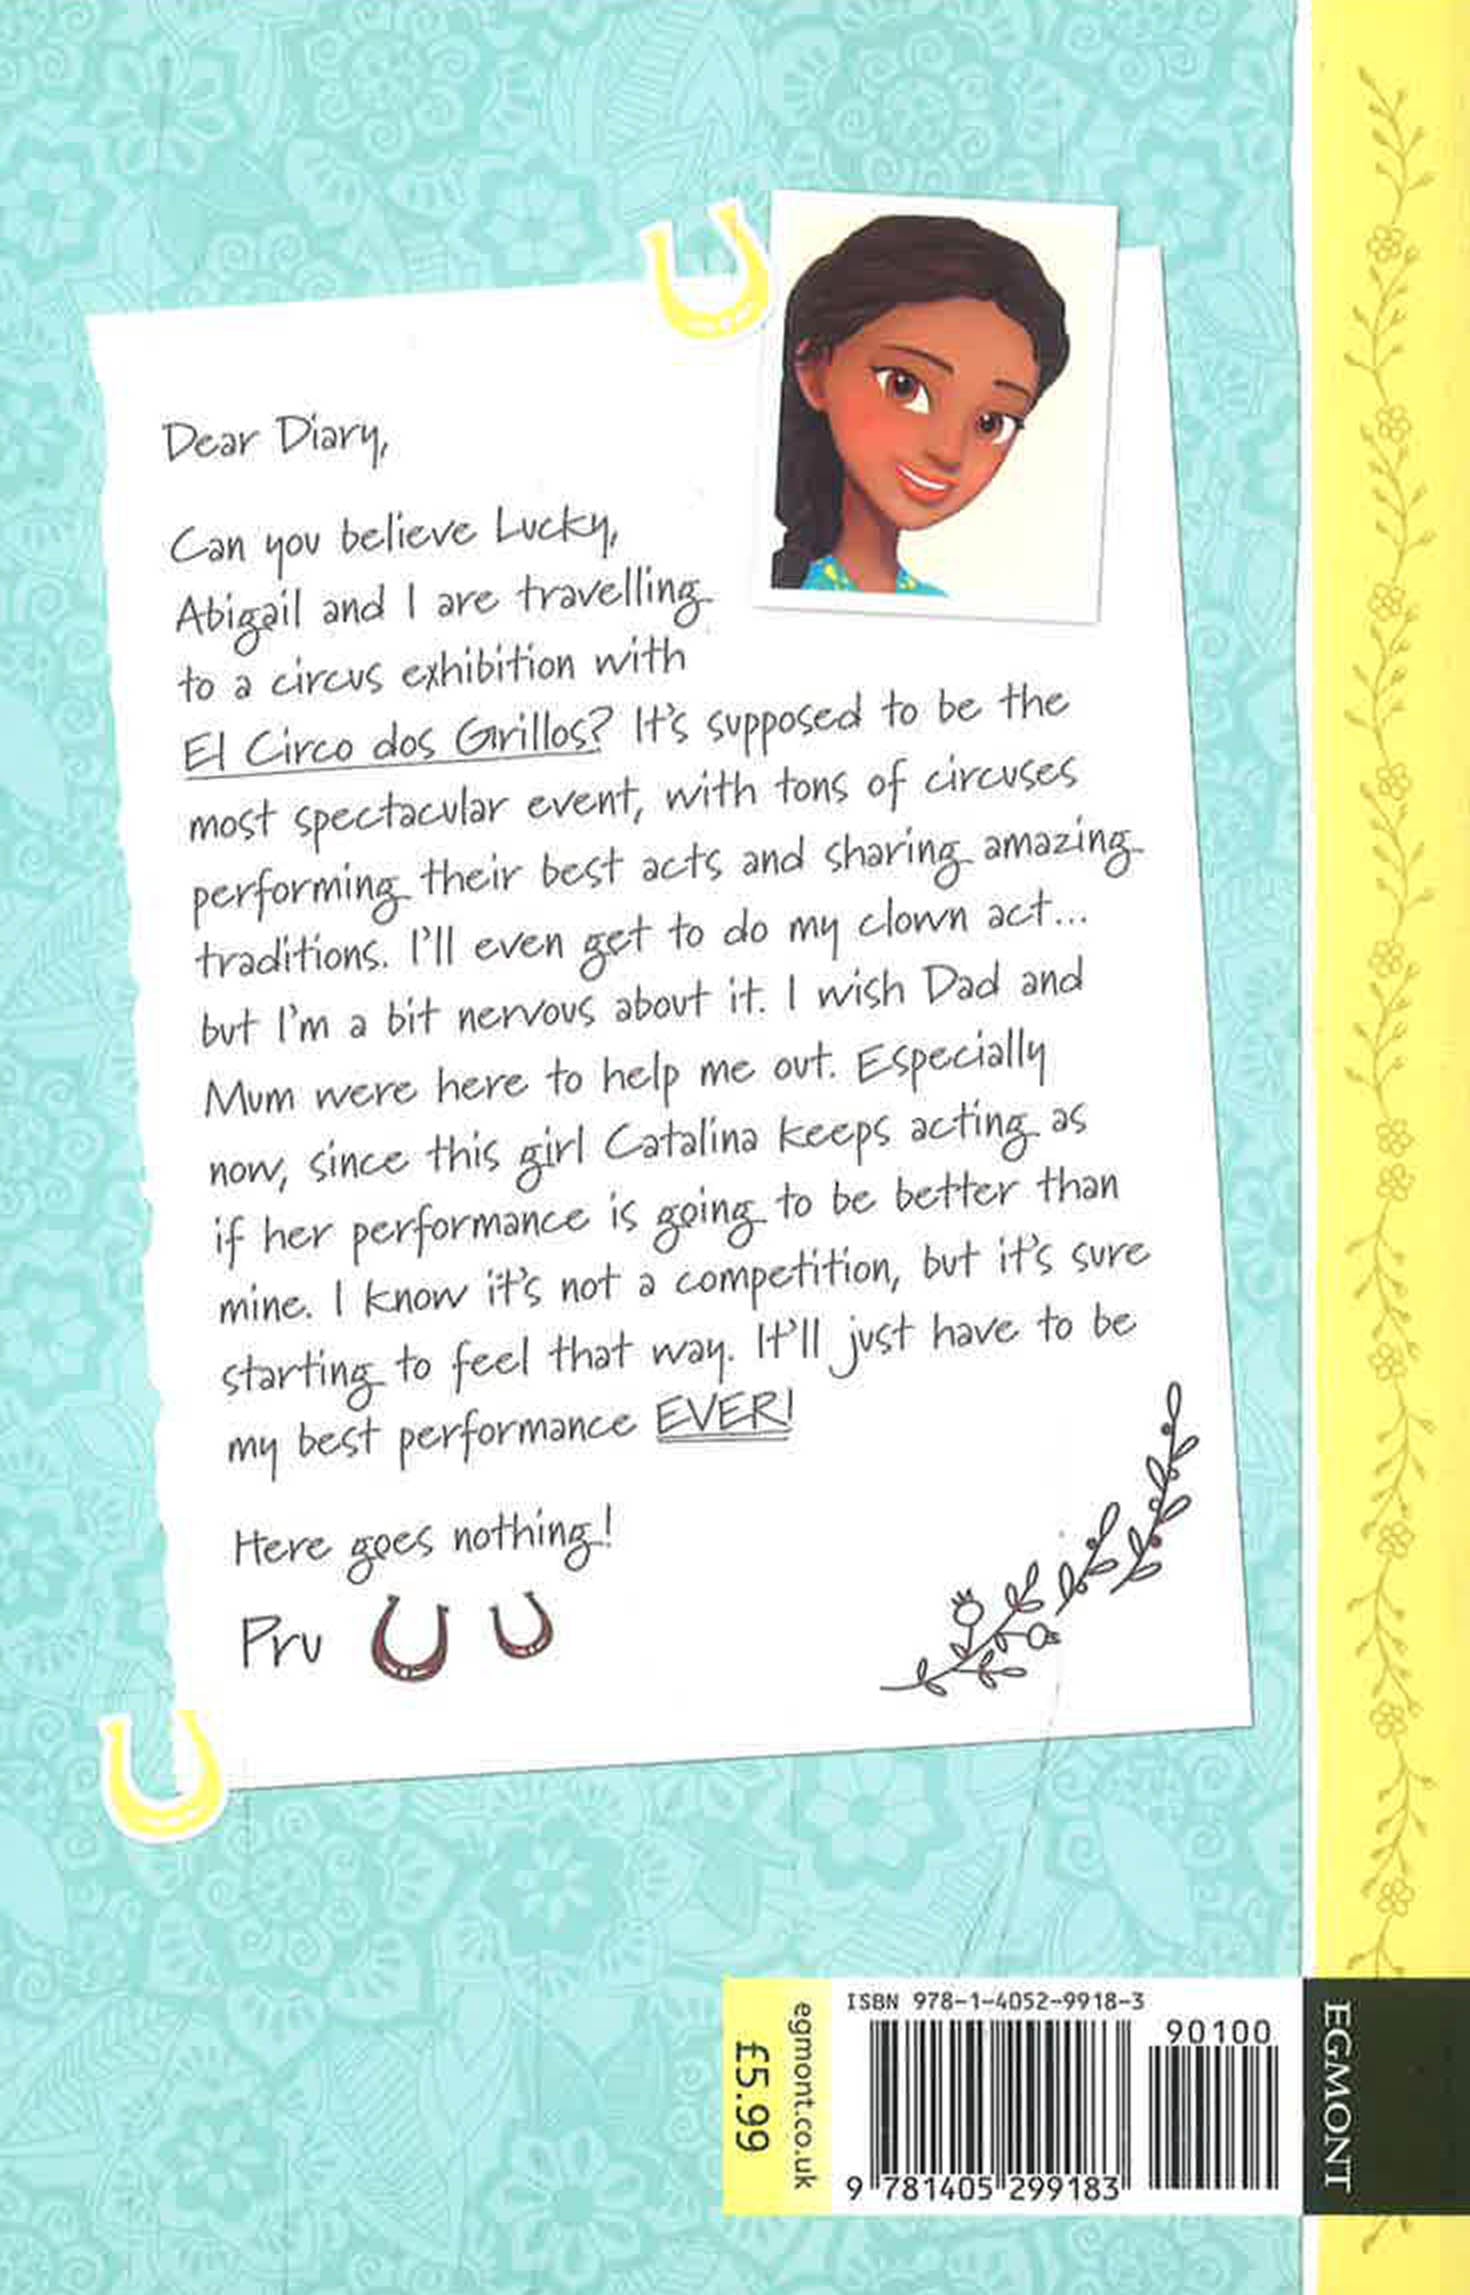 Dear Diary,
Can you believe Lucky,
Abigail and I are travelling
to a circus exhibition with
El Circo dos Grillos? It's supposed to be the
most spectacular event, with tons of circuses
performing their best acts and sharing amazing
traditions. I'll even get to do my clown act...
but I'm a bit nervous about it. I wish Dad and
Mum were here to help me out. Especially
now, since this girl Catalina keeps acting as
if her performance is going to be better than
mine. I know it's not a competition, but it's sure
starting to feel that way. It'll just have to be
my best performance EVER!
Here goes nothing!
Pru
£5.99
egmont.co.uk
ISBN 978-1-4052-9918-3
90100
9 781405 299183
EGMONT